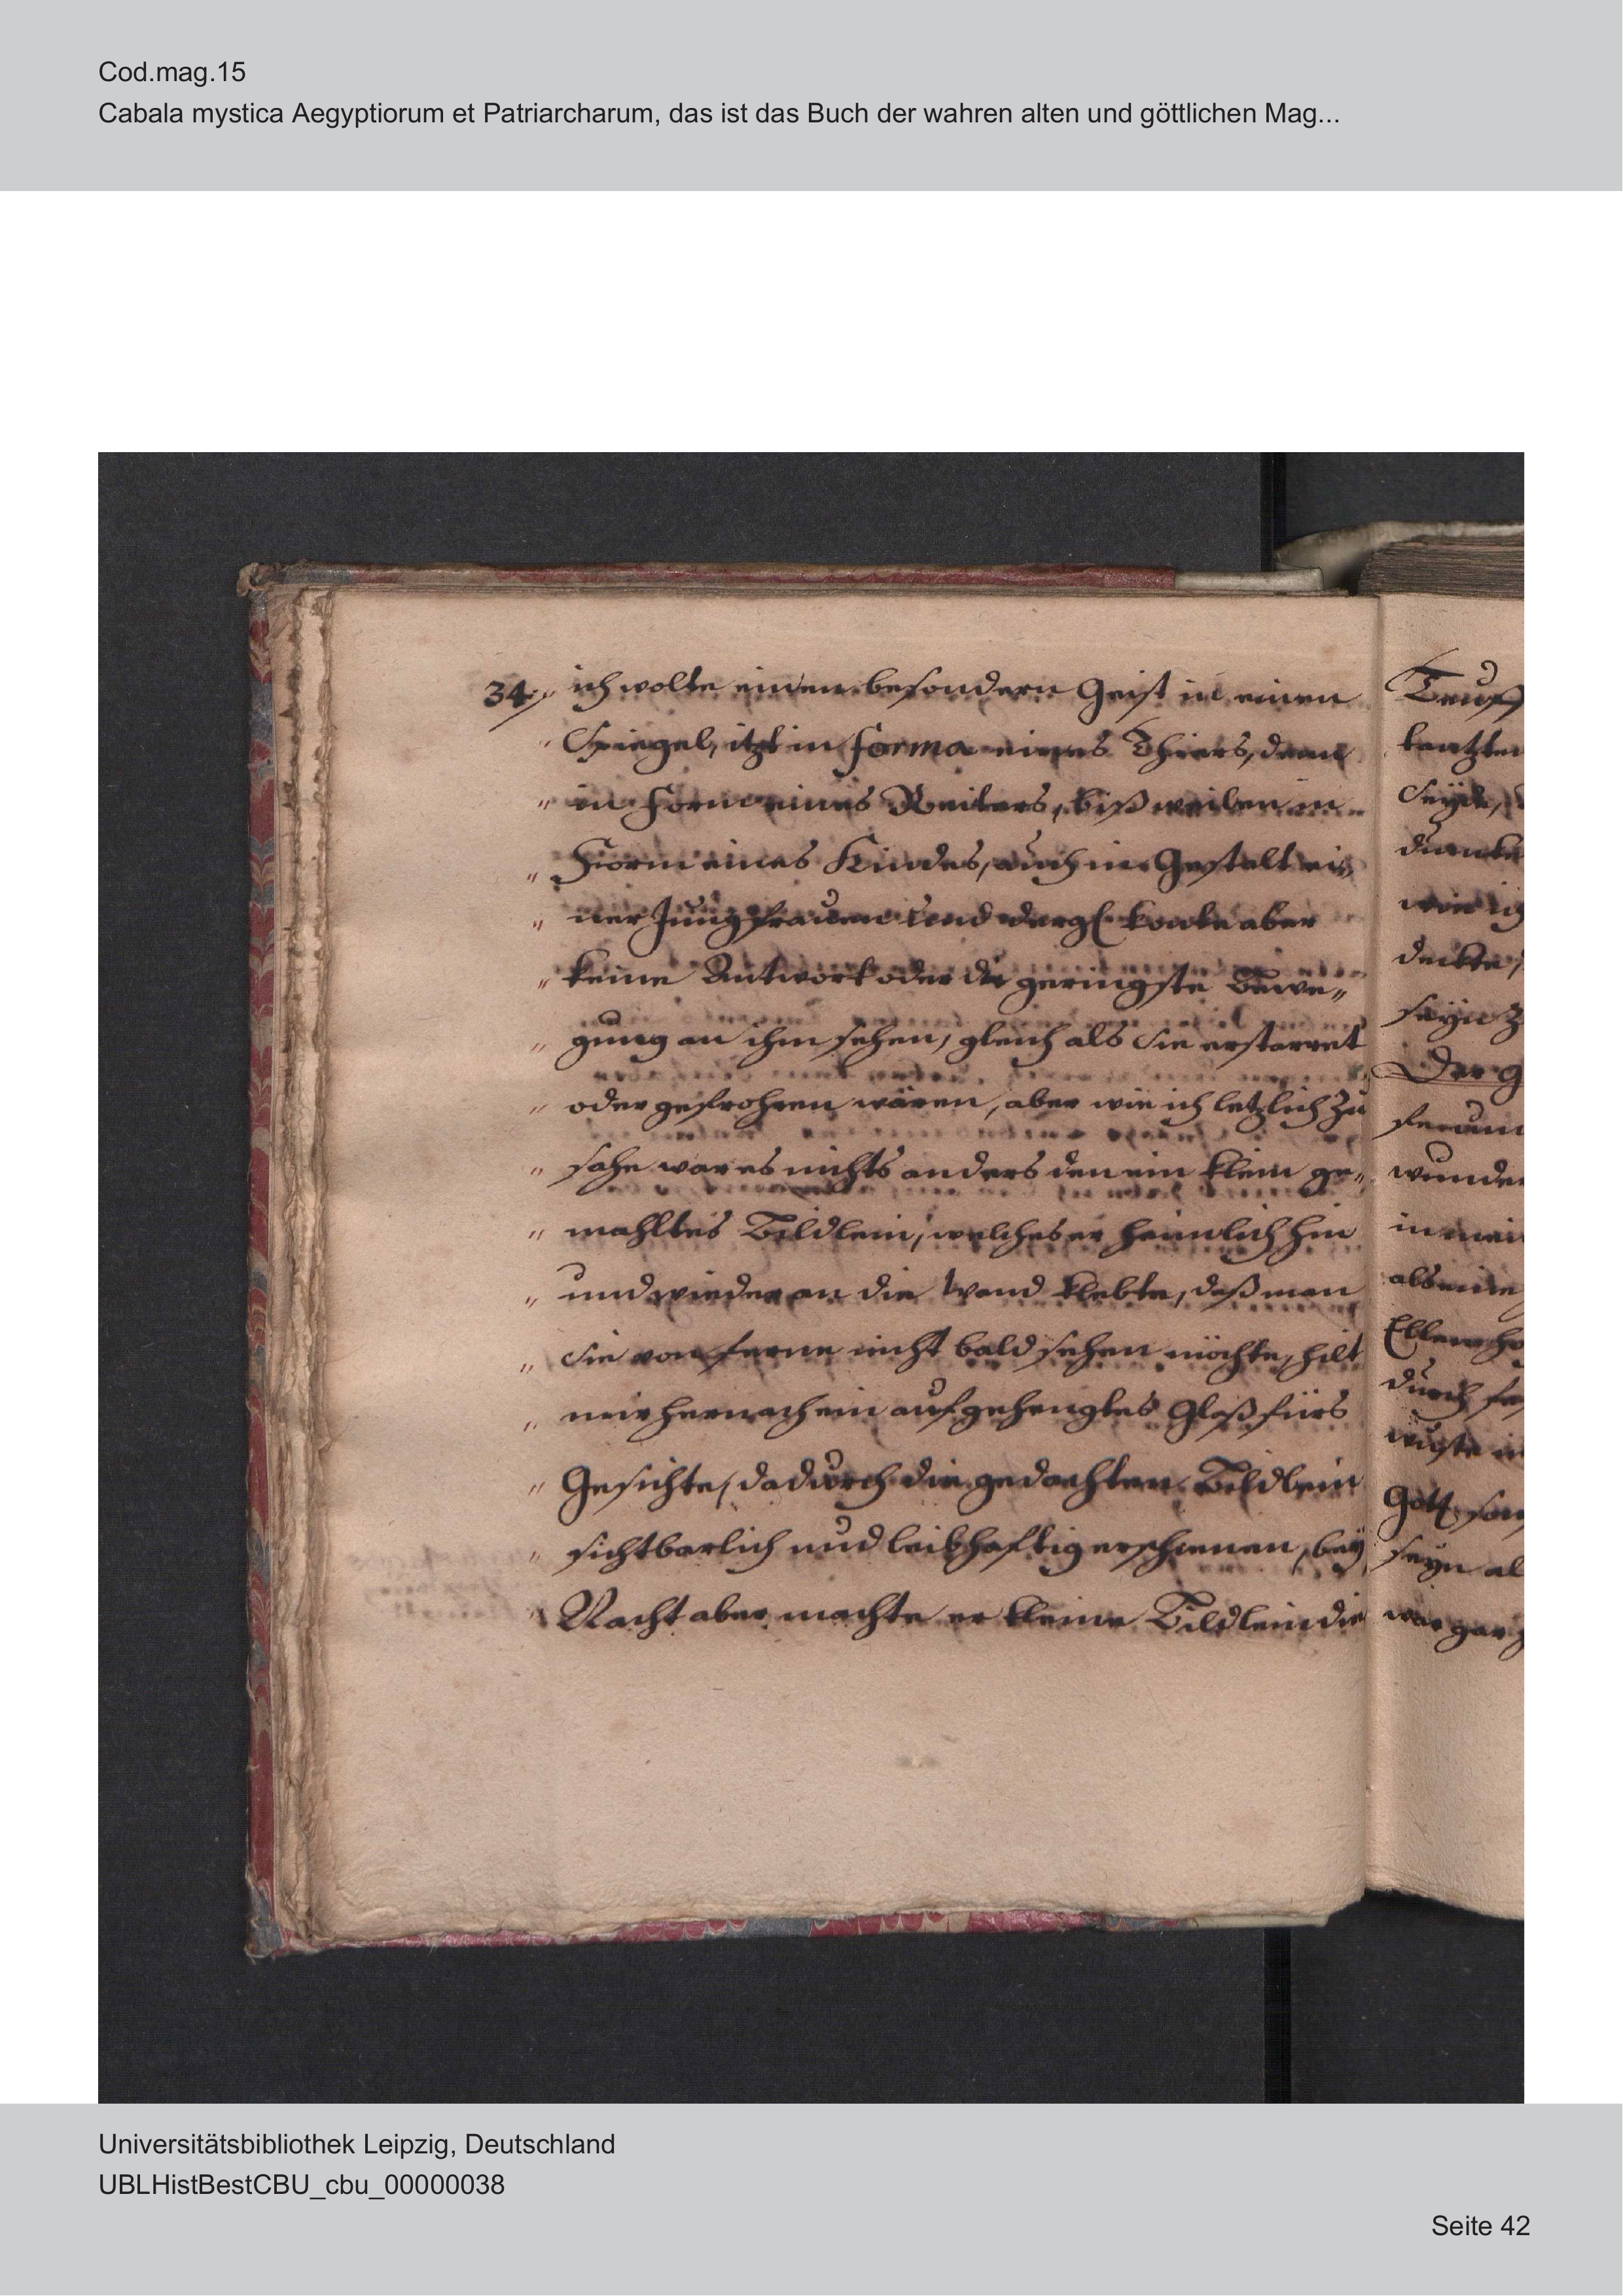 Cod.mag.15
Cabala mystica Aegyptiorum et Patriarcharum, das ist das Buch der wahren alten und göttlichen Mag...
34 „ ich wolte einen besondern Geist in einen
„ Spiegel, itzt in forma eines Thiers, dann
„ in Form eines Reiters, bißweilen in
„ Form eines Kindes, auch in Gestalt ei„
„ ner Jungfrauen und dergl konte aber
„ keine Antwort oder die geringste Bewe„
„ gung an ihm sehen, gleich als sie erstarret
„ oder gefrohren wären, aber wie ich letzlich zu
„ sahe war es nichts anders den ein klein ge„
„ mahltes Bildlein, welches er heimlich hin
„ und wieder an die Wand klebte, daß man
„ sie von ferne nicht bald sehen möchte, hilt
„ mir hernach ein aufgehengtes Glaß fürs
„ Gesichte, dadurch die gedachten Bildlein
„ sichtbarlich und leibhafftig erschienen, bey
„ Nacht aber machte er kleine Bildlein die
Der g
wunder
in mei
als eine
durch
Gott
seyn al
war gar
Universitätsbibliothek Leipzig, Deutschland
UBLHistBestCBU_cbu_00000038
Seite 42